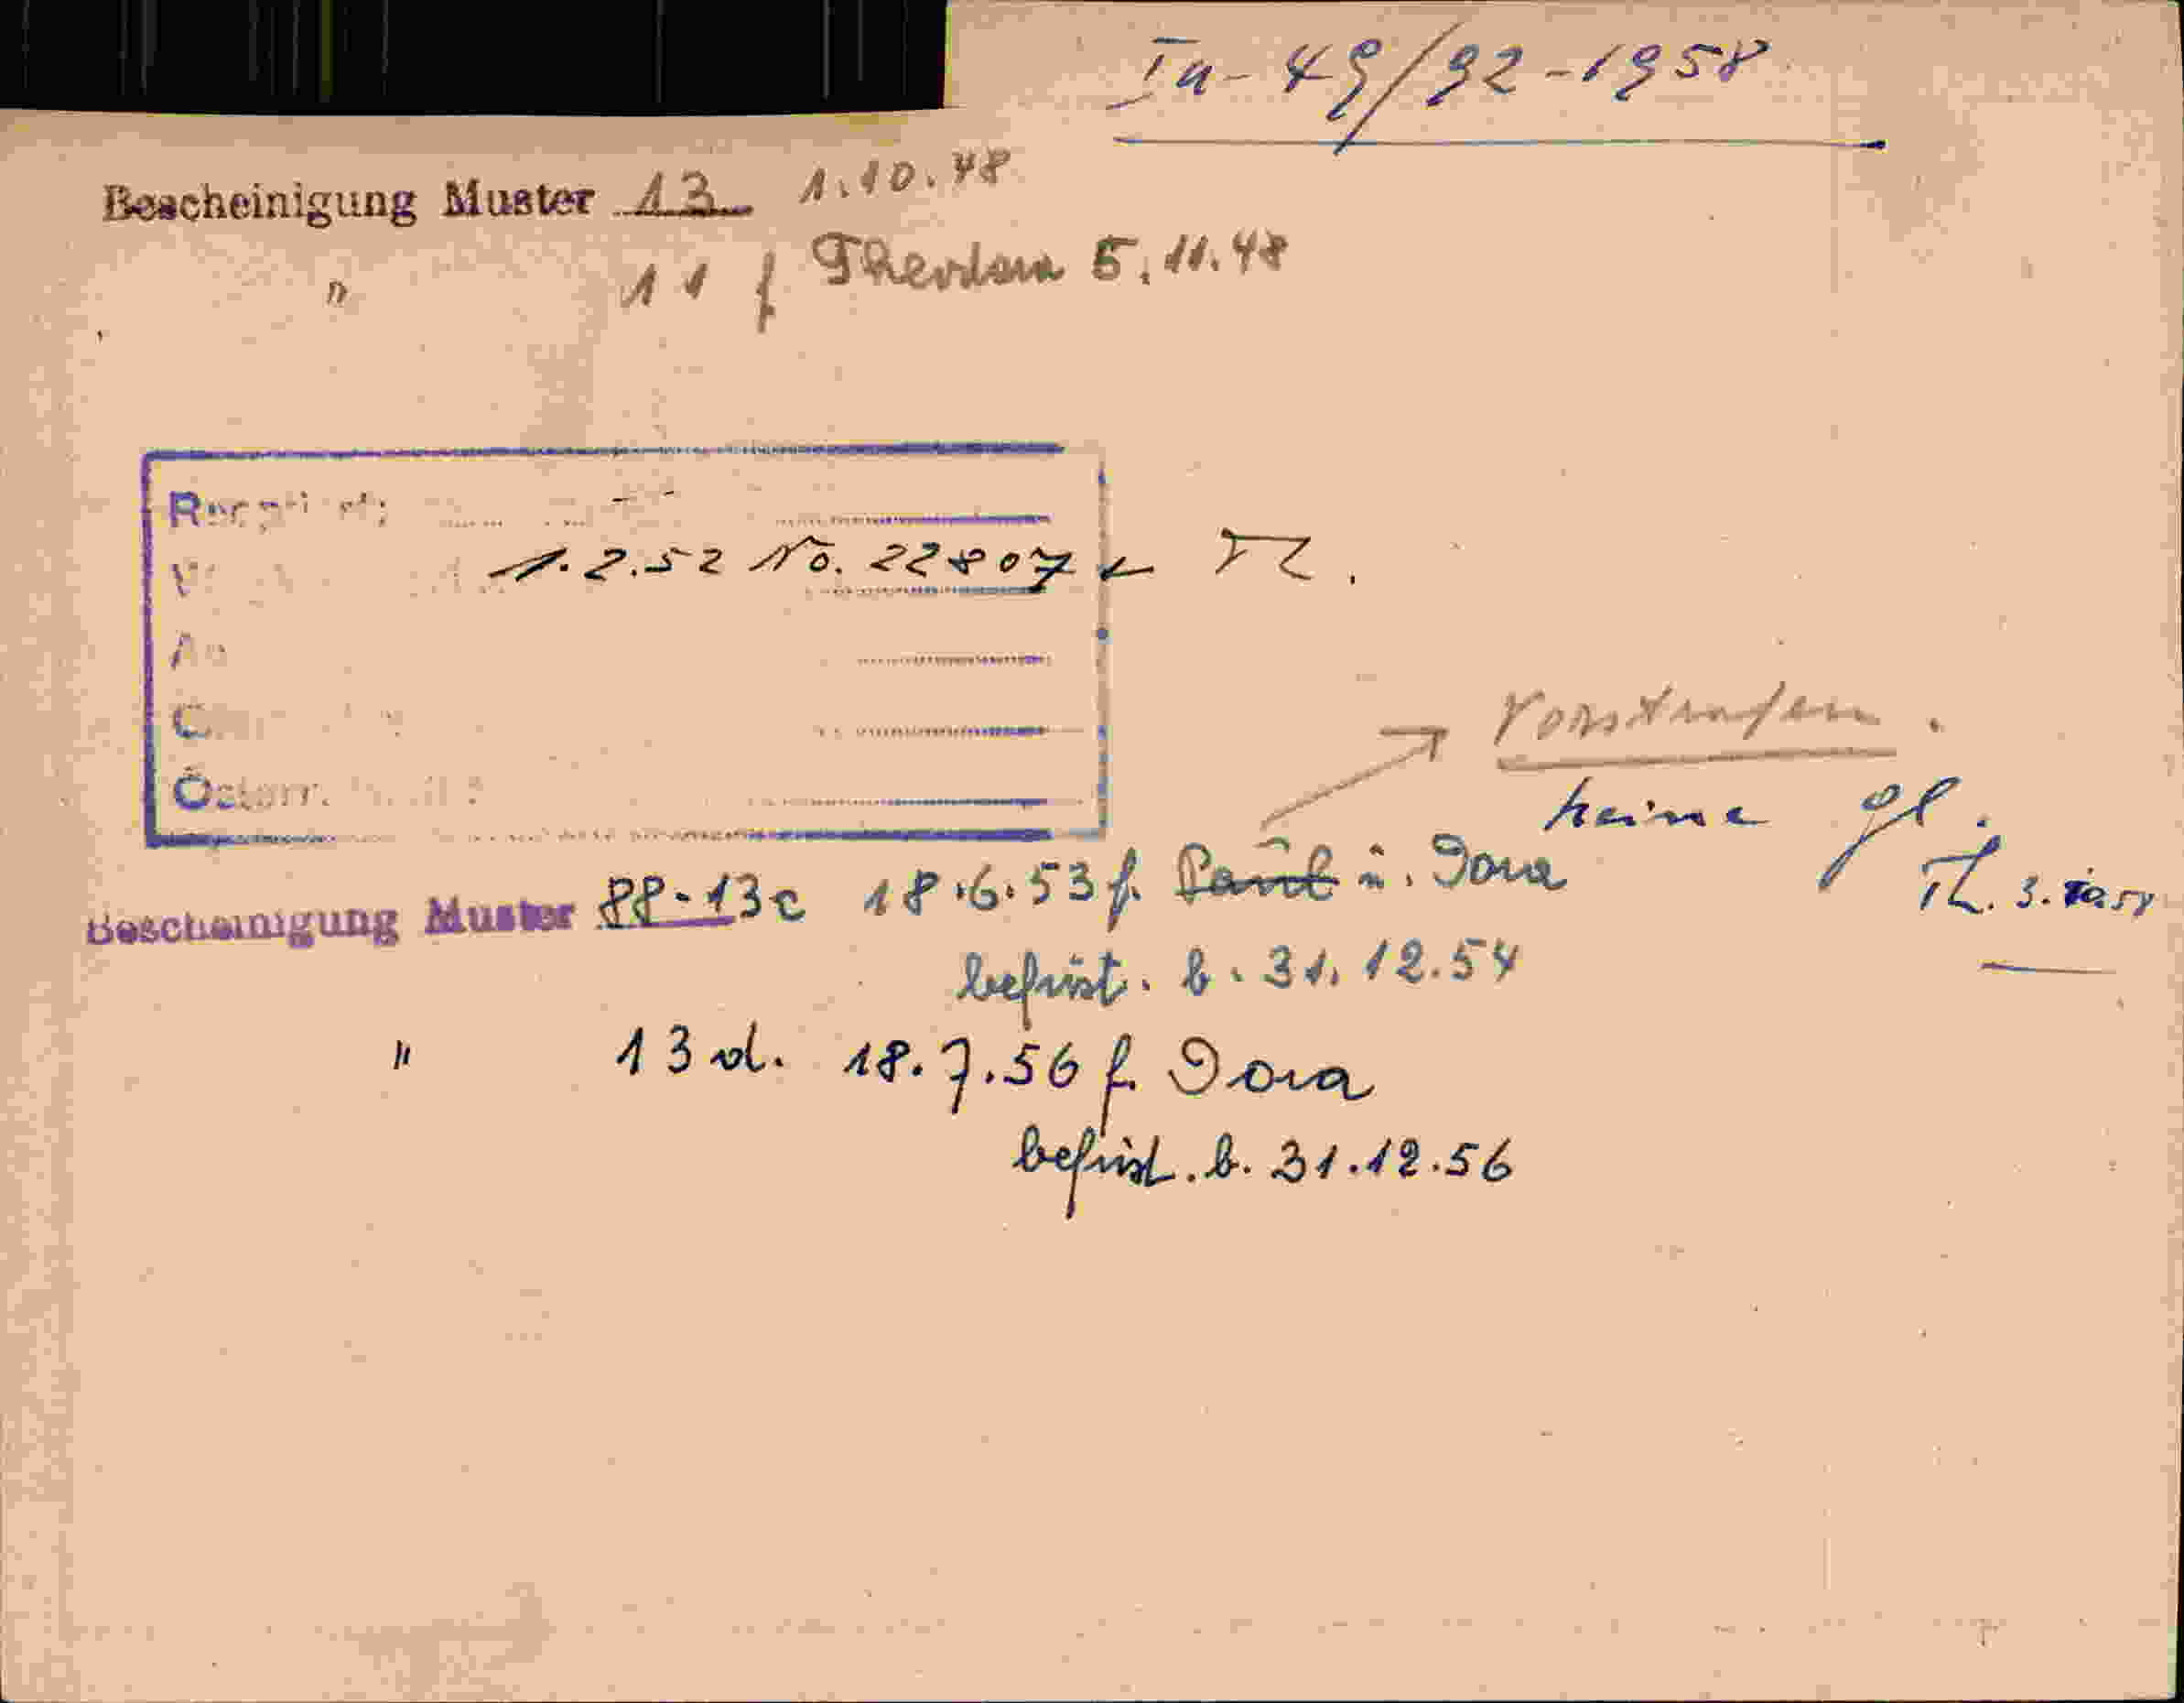 Ia-49/92-1958
Bescheinigung Muster 13 1.10.48
" 11 f Theodora 5.11.48
1.2.52 No. 22807
Vorstrafen.
keine gl.
Bescheinigung Muster 88-13c 18.6.53 f. Paul u. Dora
befrist. b. 31.12.54
" 13 d. 18.7.56 f. Dora
befrist. b. 31.12.56